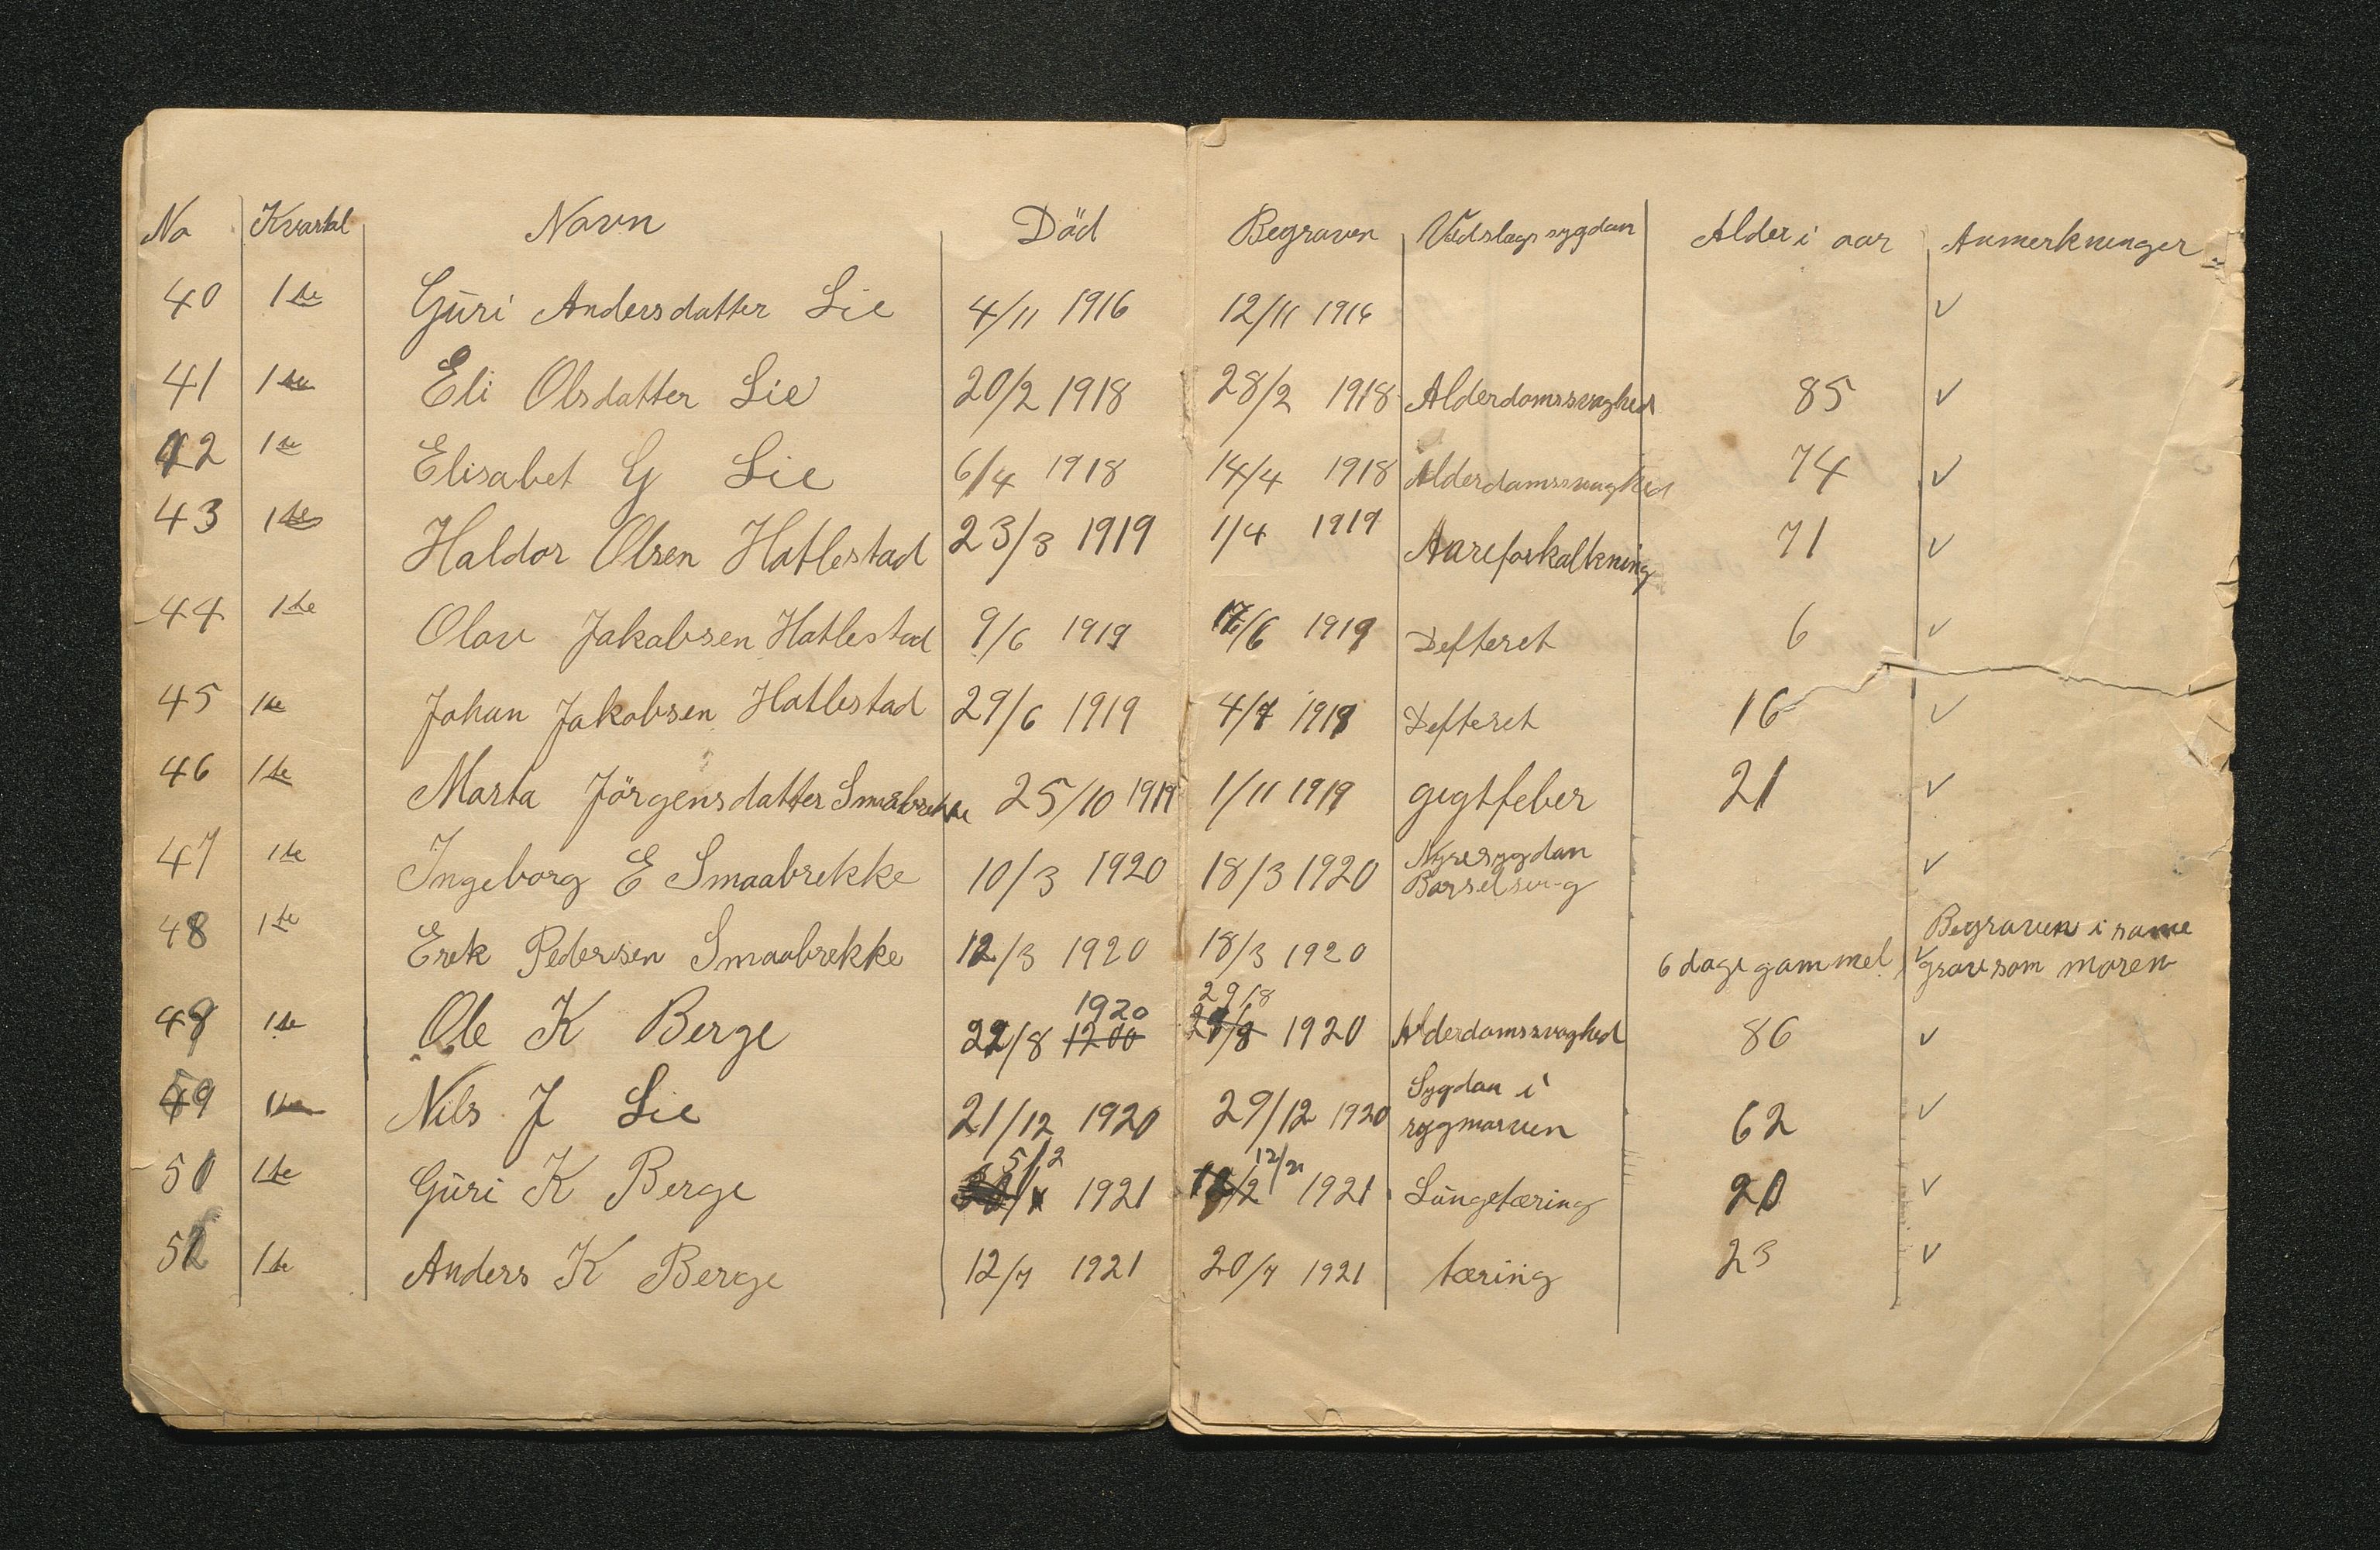 No Kvartal Navn Död Begraven Vedslags sygdan Alder i aar Anmerkninger
40 1ste Guri Andersdatter Lie 4/11 1916 12/11 1916 ✓
41 1ste Eli Olsdatter Lie 20/2 1918 28/2 1918 Alderdomssvaghed 85 ✓
42 1ste Elisabet G Lie 6/4 1918 14/4 1918 Alderdamssvaghed 74 ✓
43 1ste Haldor Olsen Hatlestad 23/3 1919 1/4 1919 Aareforkalkning 71 ✓
44 1ste Olav Jakobsen Hatlestad 9/6 1919 17/6 1919 Defteret 6 ✓
45 1ste Johan Jakobsen Hatlestad 29/6 1919 4/7 1919 Defteret 16 ✓
46 1ste Marta Jörgensdatter Smaabrekke 25/10 1919 1/11 1919 gigtfeber 21 ✓
47 1ste Ingeborg E Smaabrekke 10/3 1920 18/3 1920 Nyresygdan ✓
48 1ste Erek Pedersen Smaabrekke 12/3 1920 18/3 1920 6 dage gammel Begraven i same
✓ grav som moren
1920 29/8
49 1ste Ole K Berge 22/8 1200 1920 Alderdomssvaghed 86 ✓
Sygdan i
49 1ste Nils J Lie 21/12 1920 29/12 1920 rygmarven 62 ✓
5/2 12/2
50 1ste Guri K Berge 1921 1921 Lungetæring 20 ✓
52 1ste Anders K Berge 12/7 1921 20/7 1921 tæring 23 ✓